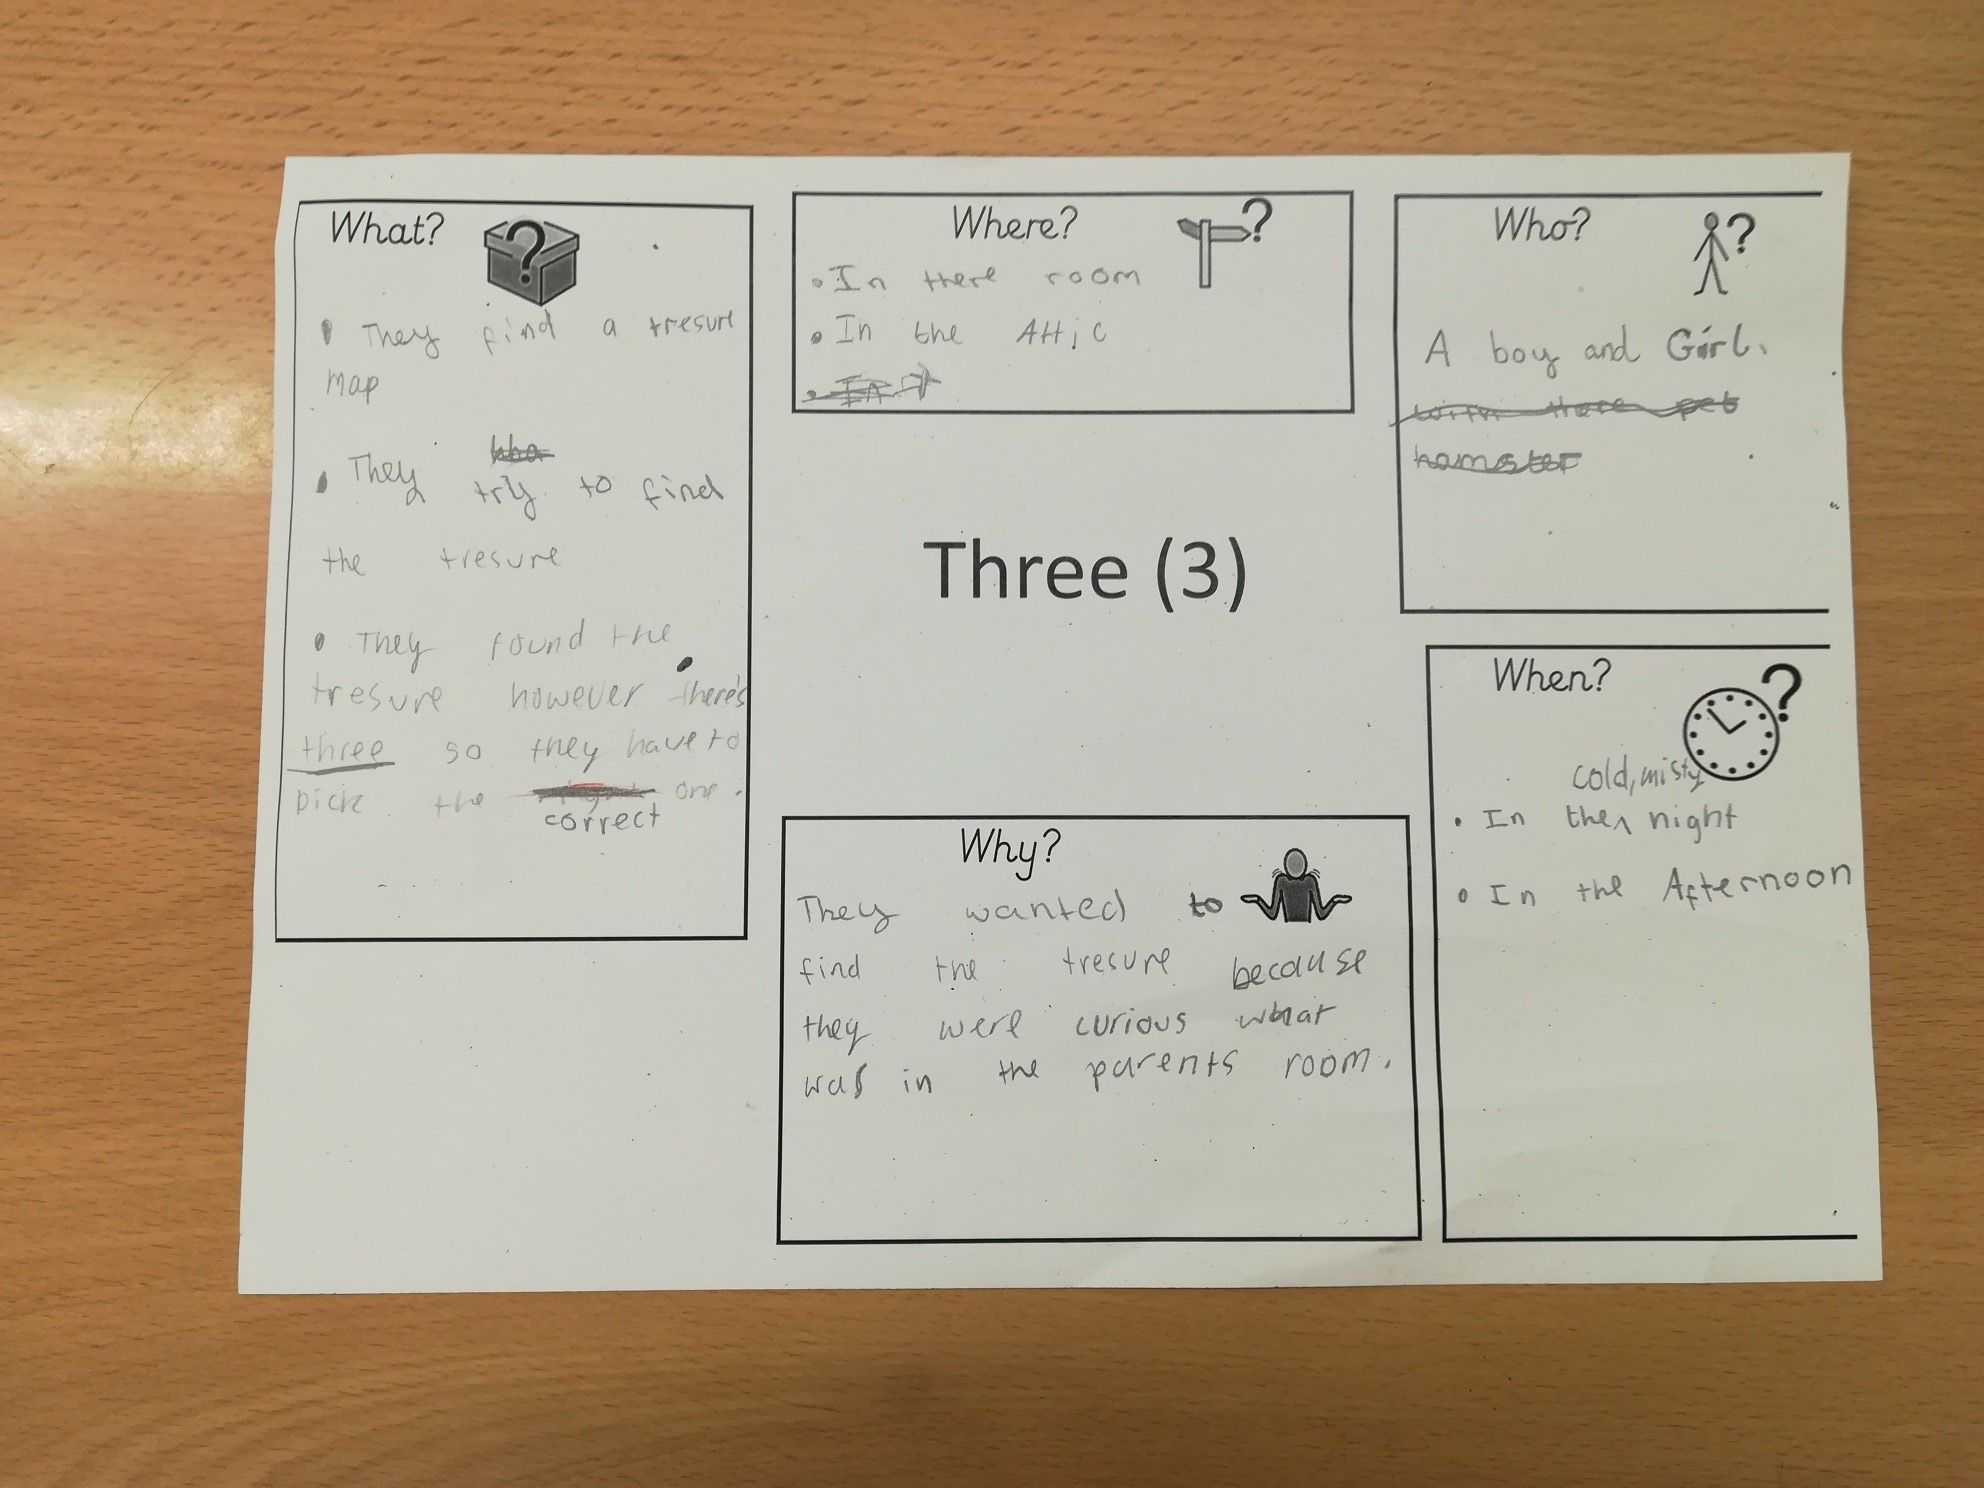 What?
They find a tresure
map
They try to find
the tresure
They found the
tresure however there's
three so they have to
pick the correct one.
Where?
In there room
In the Attic
Who?
A boy and Girl.
with there pet
hamster
Three (3)
When?
In the cold, misty night
In the Afternoon
Why?
They wanted to
find the tresure because
they were curious what
was in the parents room.